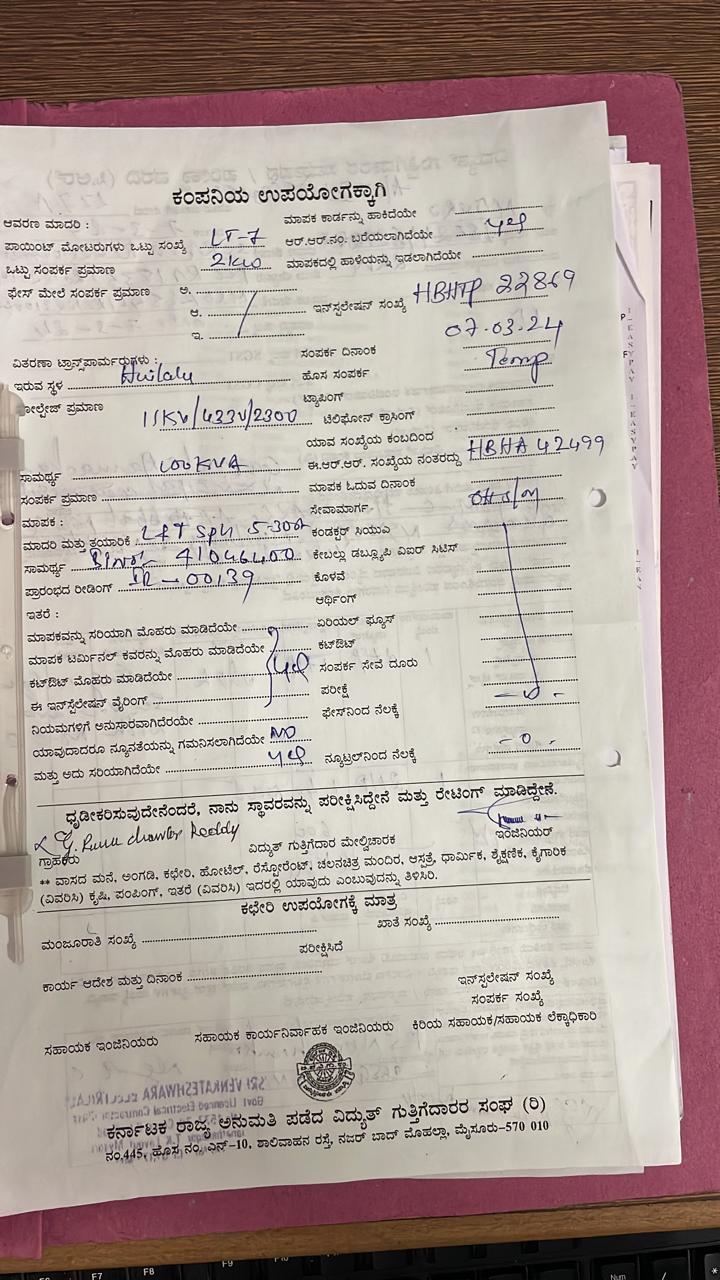 ಕಂಪನಿಯ ಉಪಯೋಗಕ್ಕಾಗಿ
ಆವರಣ ಮಾದರಿ : ಮಾಪಕ ಕಾರ್ಡನ್ನು ಹಾಕಿದೆಯೇ
ಪಾಯಿಂಟ್ ಮೋಟರುಗಳು ಒಟ್ಟು ಸಂಖ್ಯೆ LT-7 ಆರ್.ಆರ್.ನಂ. ಬರೆಯಲಾಗಿದೆಯೇ yes
ಒಟ್ಟು ಸಂಪರ್ಕ ಪ್ರಮಾಣ 2KW ಮಾಪಕದಲ್ಲಿ ಹಾಳೆಯನ್ನು ಇಡಲಾಗಿದೆಯೇ
ಫೇಸ್ ಮೇಲೆ ಸಂಪರ್ಕ ಪ್ರಮಾಣ ಅ.
ಆ. ಇನ್ಸ್ಪಲೇಷನ್ ಸಂಖ್ಯೆ HBHTP 22869
ಇ.
ವಿತರಣಾ ಟ್ರಾನ್ಸ್‌ಪಾರ್ಮರುಗಳು : ಸಂಪರ್ಕ ದಿನಾಂಕ 07.03.24
ಇರುವ ಸ್ಥಳ ಹೊಸ ಸಂಪರ್ಕ Temp
ವೋಲ್ಟೇಜ್ ಪ್ರಮಾಣ 11KV/433V/2300 ಟ್ಯಾಪಿಂಗ್
ಟೆಲಿಫೋನ್ ಕ್ರಾಸಿಂಗ್
ಯಾವ ಸಂಖ್ಯೆಯ ಕಂಬದಿಂದ
ಸಾಮರ್ಥ್ಯ 100KVA ಈ.ಆರ್.ಆರ್. ಸಂಖ್ಯೆಯ ನಂತರದ್ದು HBHA 42499
ಸಂಪರ್ಕ ಪ್ರಮಾಣ ಮಾಪಕ ಓದುವ ದಿನಾಂಕ
ಮಾಪಕ : ಸೇವಾಮಾರ್ಗ
ಮಾದರಿ ಮತ್ತು ತಯಾರಿಕೆ L&T Sph 5-30A ಕಂಡಕ್ಟರ್ ಸಿಯುಎ
ಸಾಮರ್ಥ್ಯ 41046400 ಕೇಬಲ್ಲು ಡಬ್ಲ್ಯೂಪಿ ವಿಐರ್ ಸಿಟಿಸ್
ಪ್ರಾರಂಭದ ರೀಡಿಂಗ್ IR-00139 ಕೊಳವೆ
ಇತರೆ : ಆರ್ಥಿಂಗ್
ಮಾಪಕವನ್ನು ಸರಿಯಾಗಿ ಮೊಹರು ಮಾಡಿದೆಯೇ ಏರಿಯಲ್ ಫ್ಯೂಸ್
ಮಾಪಕ ಟರ್ಮಿನಲ್ ಕವರನ್ನು ಮೊಹರು ಮಾಡಿದೆಯೇ ಕಟ್‌ಔಟ್
ಕಟ್‌ಔಟ್ ಮೊಹರು ಮಾಡಿದೆಯೇ yes ಸಂಪರ್ಕ ಸೇವೆ ದೂರು
ಈ ಇನ್ಸ್ಪಲೇಷನ್ ವೈರಿಂಗ್ ಪರೀಕ್ಷೆ
ನಿಯಮಗಳಿಗೆ ಅನುಸಾರವಾಗಿದೆರೆಯೇ ಫೇಸ್‌ನಿಂದ ನೆಲಕ್ಕೆ -0-
ಯಾವುದಾದರೂ ನ್ಯೂನತೆಯನ್ನು ಗಮನಿಸಲಾಗಿದೆಯೇ NO
ಮತ್ತು ಅದು ಸರಿಯಾಗಿದೆಯೇ yes ನ್ಯೂಟ್ರಲ್‌ನಿಂದ ನೆಲಕ್ಕೆ -0-
ಧೃಡೀಕರಿಸುವುದೇನೆಂದರೆ, ನಾನು ಸ್ಥಾವರವನ್ನು ಪರೀಕ್ಷಿಸಿದ್ದೇನೆ ಮತ್ತು ರೇಟಿಂಗ್ ಮಾಡಿದ್ದೇನೆ.
Reddy
ಗ್ರಾಹಕರು ವಿದ್ಯುತ್ ಗುತ್ತಿಗೆದಾರ ಮೇಲ್ವಿಚಾರಕ ಇಂಜಿನಿಯರ್
** ವಾಸದ ಮನೆ, ಅಂಗಡಿ, ಕಛೇರಿ, ಹೋಟೆಲ್, ರೆಸ್ಟೋರೆಂಟ್, ಚಲನಚಿತ್ರ ಮಂದಿರ, ಆಸ್ಪತ್ರೆ, ಧಾರ್ಮಿಕ, ಶೈಕ್ಷಣಿಕ, ಕೈಗಾರಿಕ
(ವಿವರಿಸಿ) ಕೃಷಿ, ಪಂಪಿಂಗ್, ಇತರೆ (ವಿವರಿಸಿ) ಇದರಲ್ಲಿ ಯಾವುದು ಎಂಬುವುದನ್ನು ತಿಳಿಸಿರಿ.
ಕಛೇರಿ ಉಪಯೋಗಕ್ಕೆ ಮಾತ್ರ
ಮಂಜೂರಾತಿ ಸಂಖ್ಯೆ ಖಾತೆ ಸಂಖ್ಯೆ
ಪರೀಕ್ಷಿಸಿದೆ
ಕಾರ್ಯ ಆದೇಶ ಮತ್ತು ದಿನಾಂಕ ಇನ್ಸ್ಪಲೇಷನ್ ಸಂಖ್ಯೆ
ಸಂಪರ್ಕ ಸಂಖ್ಯೆ
ಸಹಾಯಕ ಇಂಜಿನಿಯರು ಸಹಾಯಕ ಕಾರ್ಯನಿರ್ವಾಹಕ ಇಂಜಿನಿಯರು ಕಿರಿಯ ಸಹಾಯಕ/ಸಹಾಯಕ ಲೆಕ್ಕಾಧಿಕಾರಿ
ಕರ್ನಾಟಕ ರಾಜ್ಯ ಅನುಮತಿ ಪಡೆದ ವಿದ್ಯುತ್ ಗುತ್ತಿಗೆದಾರರ ಸಂಘ (ರಿ)
ನಂ.445, ಹೊಸ ನಂ. ಎನ್-10, ಶಾಲಿವಾಹನ ರಸ್ತೆ, ನಜರ್ ಬಾದ್ ಮೊಹಲ್ಲಾ, ಮೈಸೂರು-570 010
F7 F8 F9 F10 Num